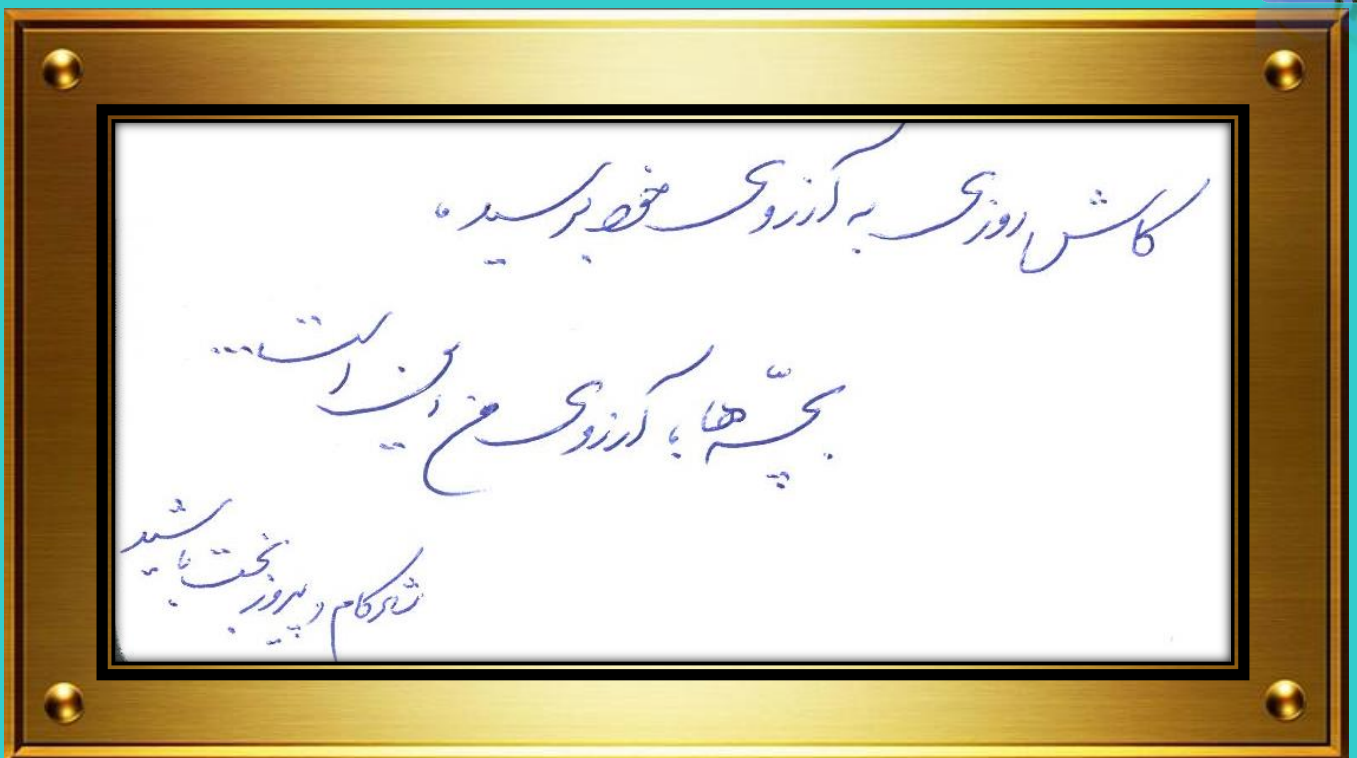 کاش روزی به آرزوی خود برسید.
بچّه ها، آرزوی من این است...
شادکام و پیروزبخت باشید